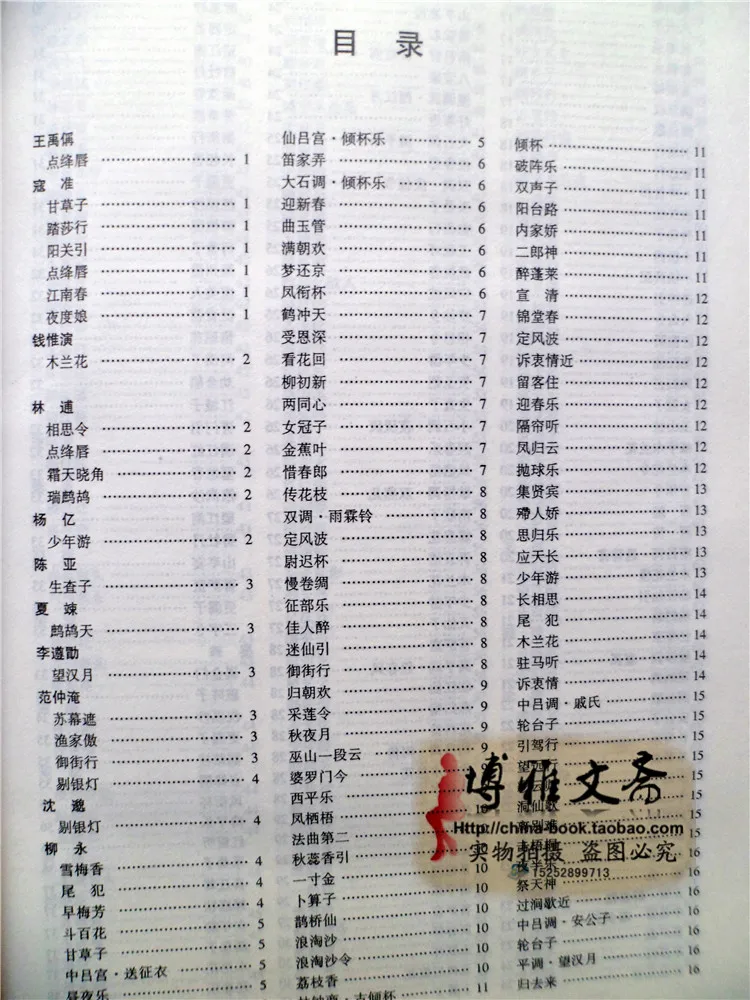 目 录
王禹偁
点绛唇 1
寇 准
甘草子 1
踏莎行 1
阳关引 1
点绛唇 1
江南春 1
夜度娘 1
钱惟演
木兰花 2
林 逋
相思令 2
点绛唇 2
霜天晓角 2
瑞鹧鸪 2
杨 亿
少年游 2
陈 亚
生查子 3
夏 竦
鹧鸪天 3
李遵勖
望汉月 3
范仲淹
苏幕遮 3
渔家傲 3
御街行 3
剔银灯 4
沈 邈
剔银灯 4
柳 永
雪梅香 4
尾 犯 4
早梅芳 4
斗百花 5
甘草子 5
中吕宫·送征衣 5
昼夜乐 5
仙吕宫·倾杯乐 5
笛家弄 6
大石调·倾杯乐 6
迎新春 6
曲玉管 6
满朝欢 6
梦还京 6
凤衔杯 6
鹤冲天 7
受恩深 7
看花回 7
柳初新 7
两同心 7
女冠子 7
金蕉叶 7
惜春郎 7
传花枝 8
双调·雨霖铃 8
定风波 8
尉迟杯 8
慢卷䌷 8
征部乐 8
佳人醉 8
迷仙引 8
御街行 8
归朝欢 9
采莲令 9
秋夜月 9
巫山一段云 9
婆罗门今
西平乐
凤栖梧
法曲第二
秋蕊香引
一寸金 10
卜算子 10
鹊桥仙 10
浪淘沙 10
浪淘沙令 10
荔枝香 10
古倾杯 11
倾杯 11
破阵乐 11
双声子 11
阳台路 11
内家娇 11
二郎神 11
醉蓬莱 11
宣 清 12
锦堂春 12
定风波 12
诉衷情近 12
留客住 12
迎春乐 12
隔帘听 12
凤归云 12
抛球乐 12
集贤宾 13
殢人娇 13
思归乐 13
应天长 13
少年游 13
长相思 14
尾 犯 14
木兰花 14
驻马听 14
诉衷情 14
中吕调·戚氏 15
轮台子 15
引驾行 15
望远行 15
洞仙歌 15
夜半乐 16
祭天神 16
过涧歇近 16
中吕调·安公子 16
轮台子 16
平调·望汉月 16
归去来 16
博雅文斋
Http://china-book.taobao.com
实物拍摄 盗图必究
15252899713